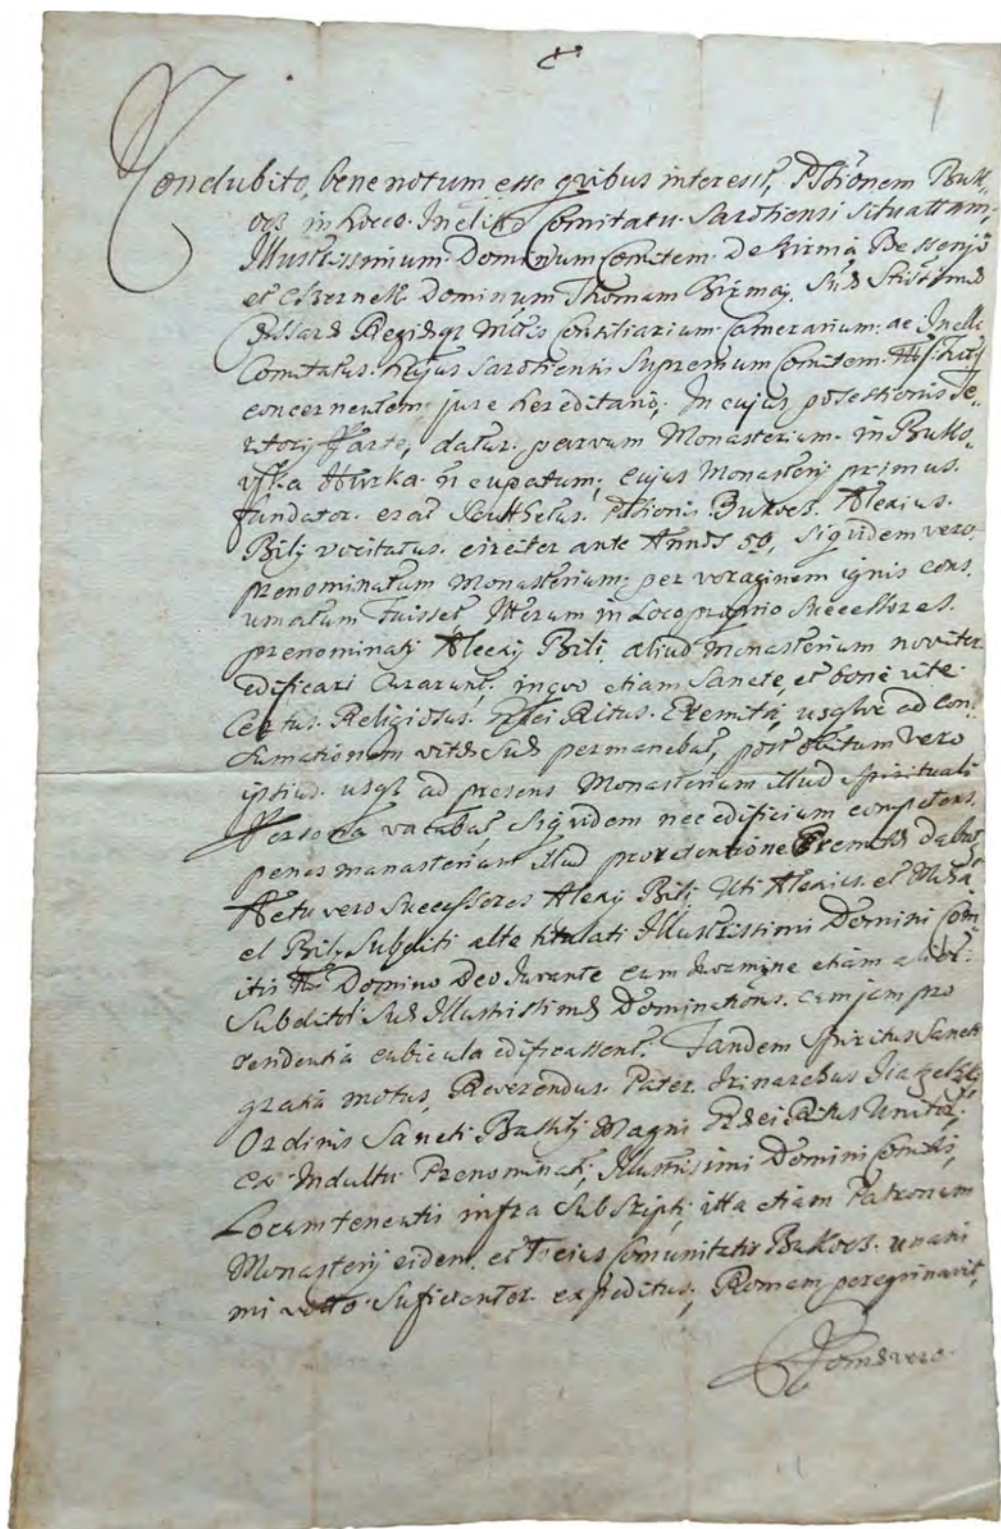 1
Condubito, bene notum esse quibus interest, Pssionem Buk„
ocz in Locco Inclito Comitatu Sarosiensi situattam,
Illustrissimum Dominum Comitem De Szirma, Bessenyö
et Csernek Dominum Thomam Szirmaÿ, Suæ Sttissimæ
Cæssareæ Regiæqz Mttis Consiliarium Camerarium ac Incliti
Comitatus hujus Sarosiensis Supremum Comitem
concernentem jure hereditario, In cujus possesionis Te„
ritorÿ Parte, datur parvum Monasterium in Buko„
vska Hurka nucupatum, cujus Monasterÿ primus
fundator erat Sculthetus Pssionis Bukocz Alexius
Bilÿ vocitatus circiter ante Annos 50, siquidem vero
prenominatum Monasterium per voraginem ignis cons„
umatum fuisset, Itterum in Loco proprio Successores
prenominatÿ Alexÿ Bili, aliud Monasterium noviter
edificari Curarunt, inquo etiam Sancte, et bonè vite
Certus Religiosus Græci Ritus Eremita, usqve ad con„
sumationem vitæ suæ permanebat, post obitum vero
ipsius usqz ad presens Monasterium illud spirituali
Persona vacabat, siquidem nec edificium competens
penes manasterium illud pro retentione Eremitæ dabat,
Actu vero Successores Alexÿ Bilÿ, Uti Alexius et Micha„
el Bilÿ Subditi alte titulati Illustrissimi Domini Com„
itis Domino Deo Juvante cum Juvamine etiam alior
Subditor Suæ Illustrissimæ Dominationis cum jam pro
residentia cubicula edificassent. Tandem Spiritus Sancti
gratia motus, Reverendus Pater Irinarchus
Ordinis Sancti Basilÿ Magni Græci Ritus Unitor,
Ex Indultu Prenominati, Illustrissimi Domini Comitis,
Locumtenentis infra Subscripti, itta etiam Patronum
Monasterÿ eidem, et Totius Comunitatis Bukocz unani
mi votto Suficienter expeditus, Romam peregrinavit,
Romæ vero